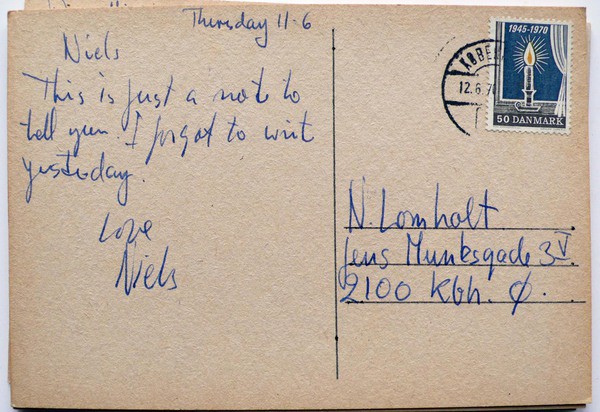 Thursday 11-6
Niels
This is just a note to
tell you I forgot to writ
yesterday.
Love
Niels
1945-1970
50 DANMARK
KØBEN
12.6.70
N. Lomholt
Jens Munksgade 3V.
2100 Kbh. Ø.